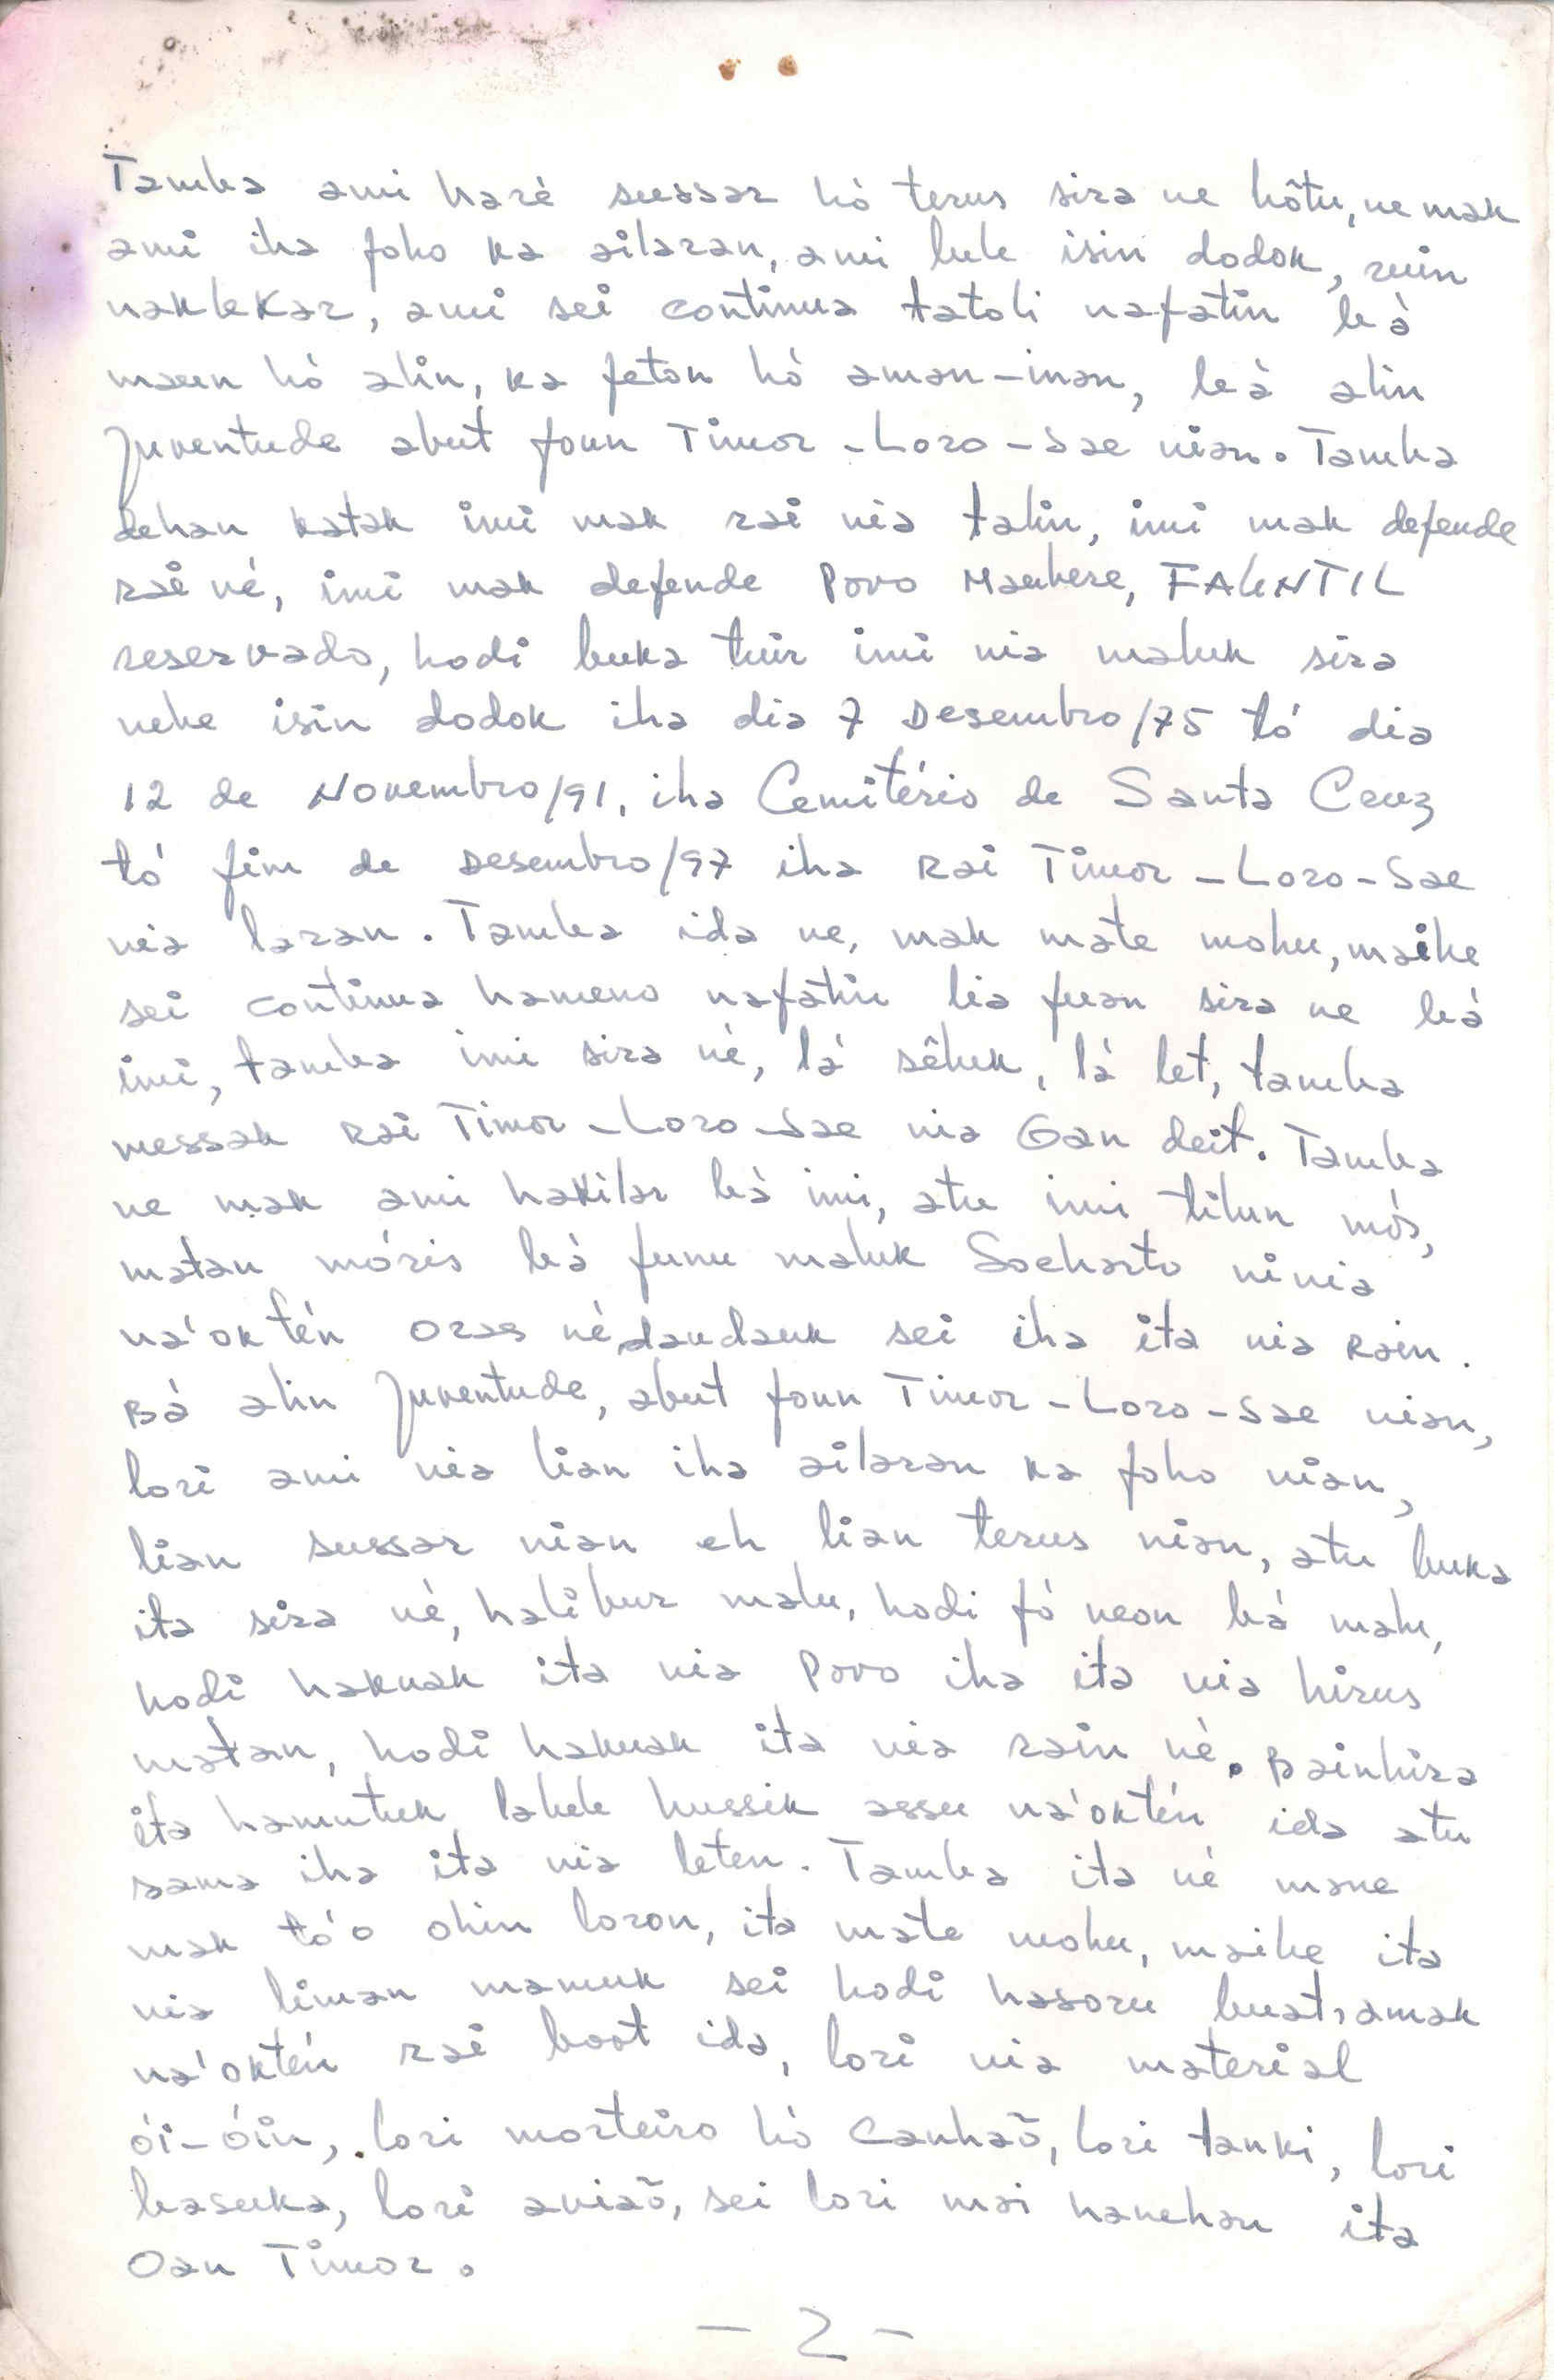 Tamba ami haré sussar hó terus sira ne hôtu, ne mak
ami iha foho ka ailaran, ami bele isin dodok, ruin
naklekar, ami sei continua tatoli nafatin bá
maun hó alin, ka feton hó aman-inan, bá alin
Juventude abut foun Timor-Loro-Sae nian. Tamba
dehan katak imi mak rai nia talin, imi mak defende
rai né, imi mak defende Povo Maubere, FALINTIL
reservado, hodi buka tuir imi nia maluk sira
nebe isin dodok iha dia 7 Desembro/75 tó dia
12 de Novembro/91, iha Cemitério de Santa Cruz
tó fim de Desembro/97 iha Rai Timor-Loro-Sae
nia laran. Tamba ida ne, mak mate mohu, maibe
sei continua hameno nafatin lia fuan sira ne bá
imi, tamba imi sira né, lá sêluk, lá let, tamba
messak Rai Timor-Loro-Sae nia Oan deit. Tamba
ne mak ami hakilar bá imi, atu imi tilun mós,
matan móris bá funu maluk Soeharto ninia
na'oktén oras né daudauk sei iha ita nia Rain.
Bá alin Juventude, abut foun Timor-Loro-Sae nian,
lori ami nia lian iha ailaran ka foho nian,
lian sussar nian eh lian terus nian, atu buka
ita sira né, halibur malu, hodi fó neon bá malu,
hodi hakuak ita nia Povo iha ita nia hirus
matan, hodi hakuak ita nia rain né. Bainhira
ita hamutuk, labele hussik assu na'oktén ida atu
sama iha ita nia leten. Tamba ita né mane
mak tó'o ohin loron, ita mate mohu, maibe ita
nia liman mamuk sei hodi hasoru buat, amak
na'oktén rai boot ida, lori nia material
ói-óin, lori morteiro hó Canhaõ, lori tanki, lori
basuka, lori aviaõ, sei lori mai hanehan ita
Oan Timor.
- 2 -